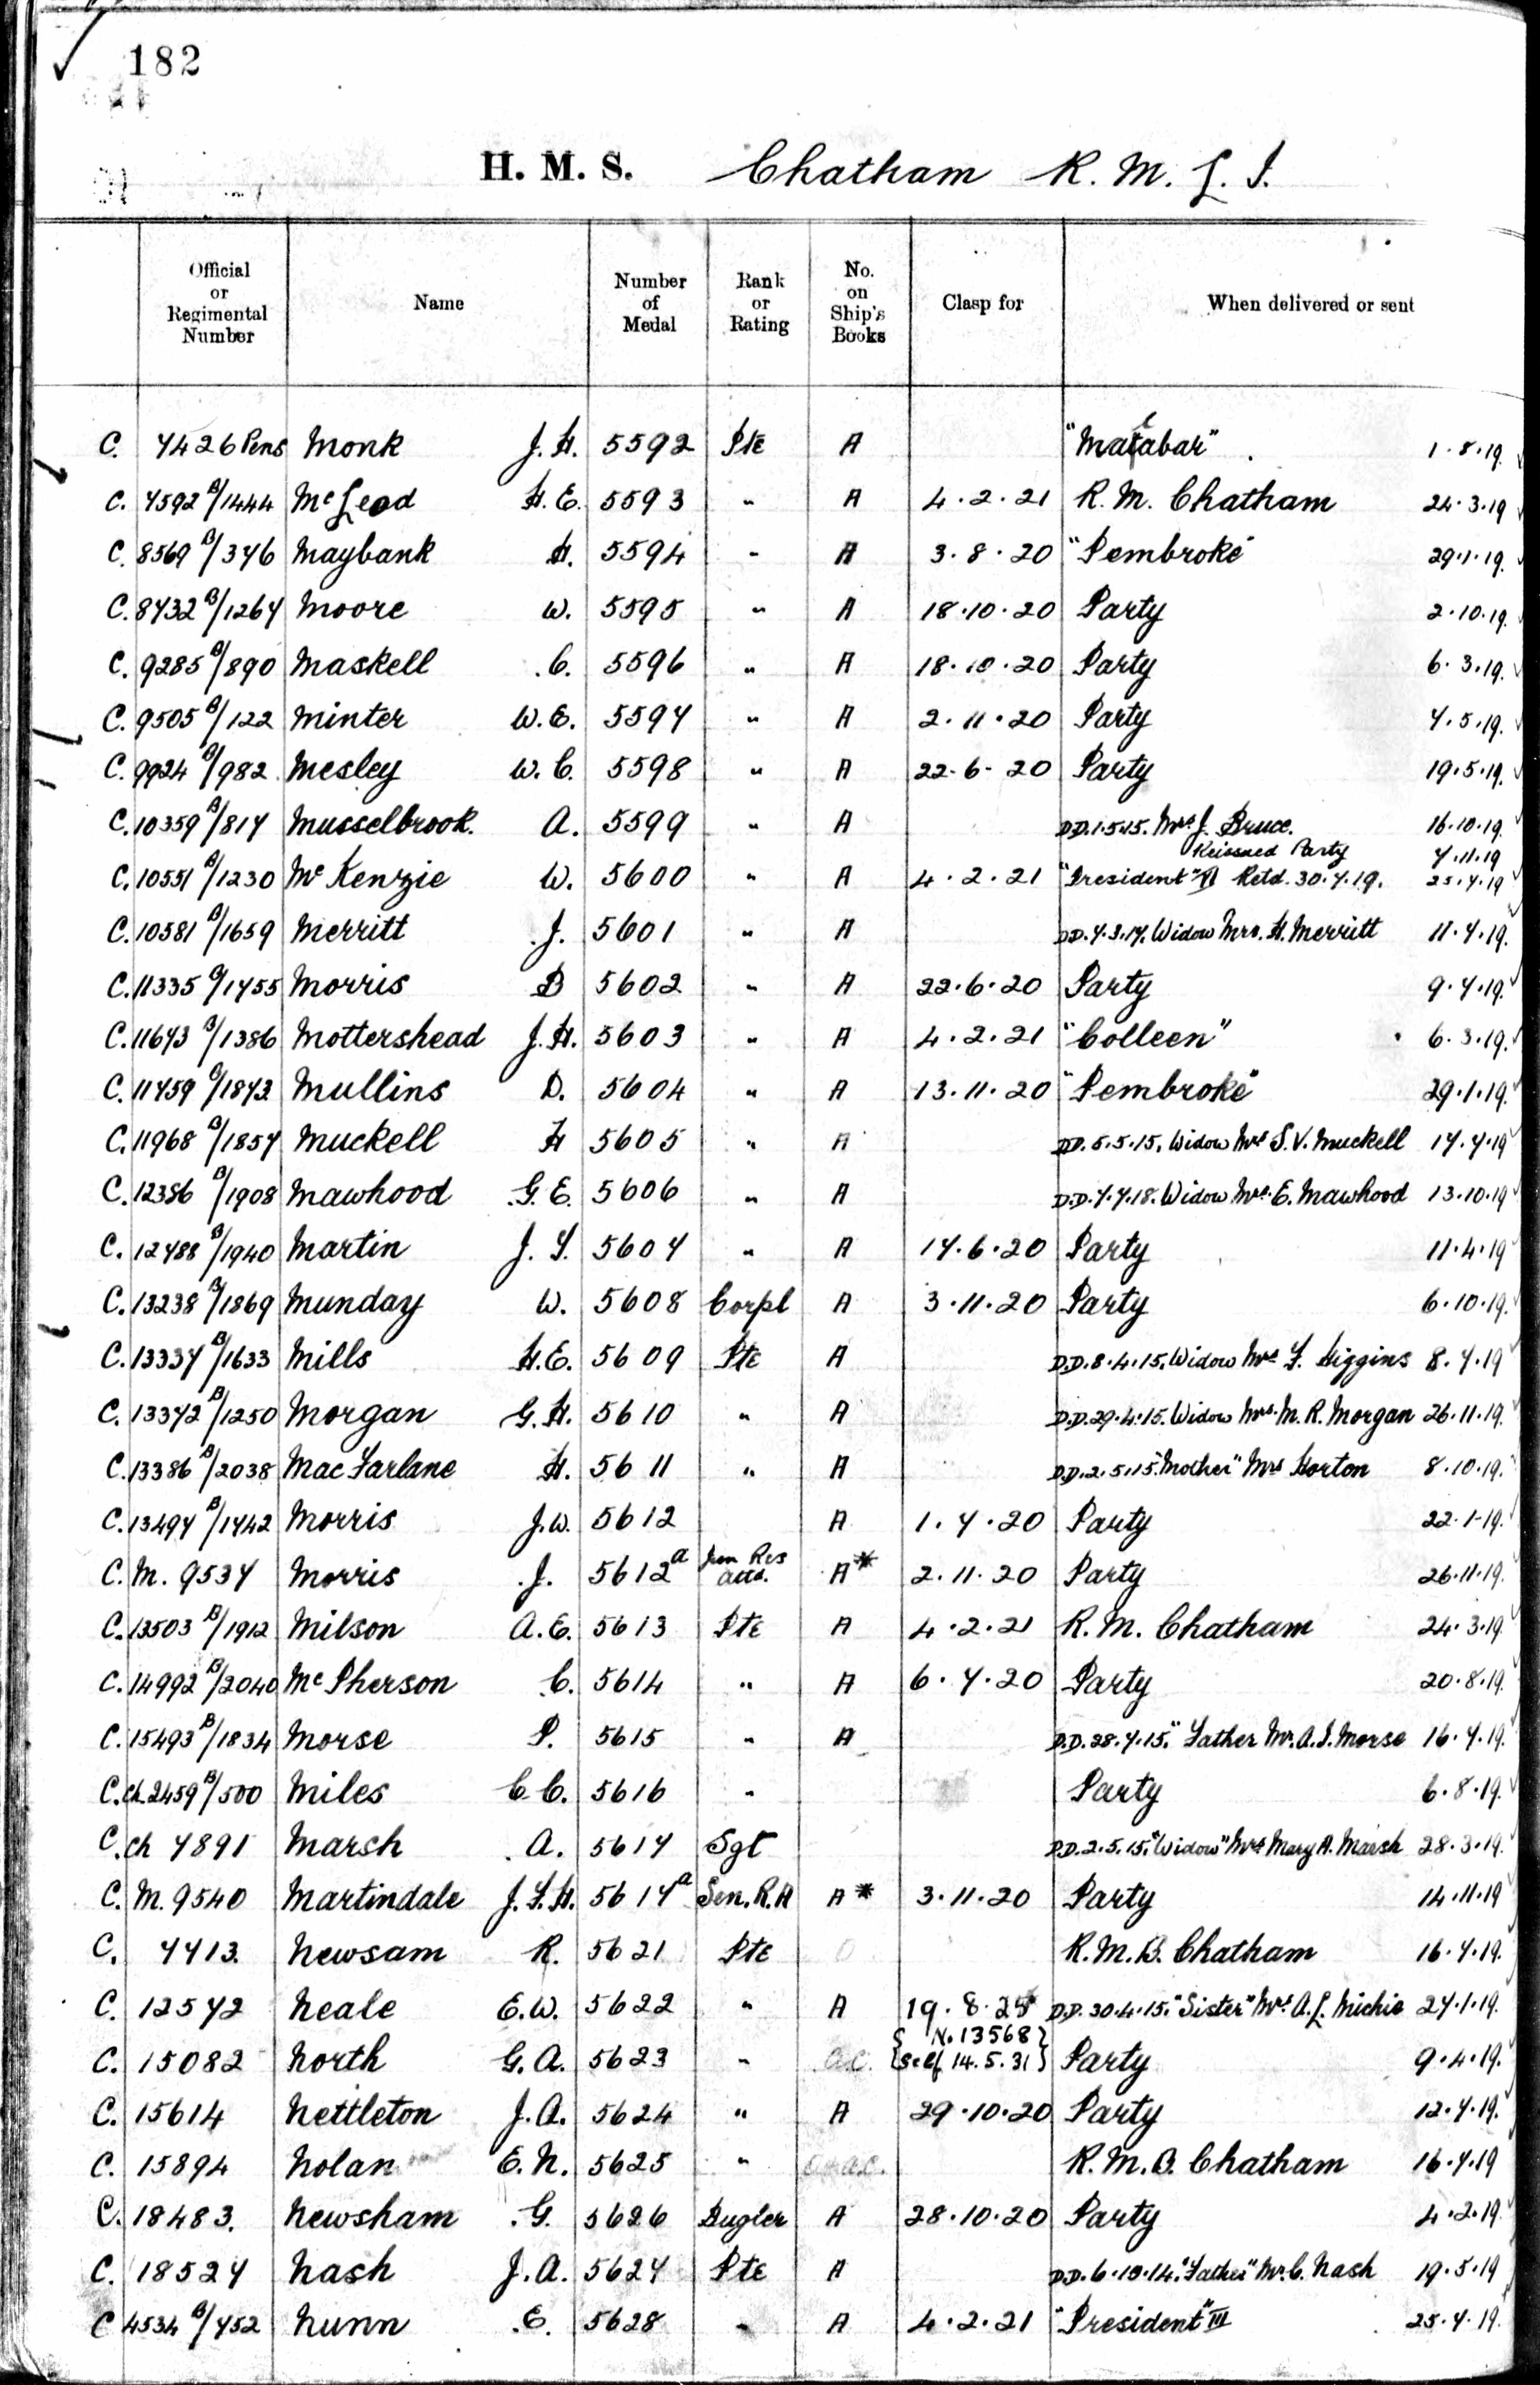 182
H. M. S. Chatham R. M. L. I.
Official or Regimental Number | Name | Number of Medal | Rank or Rating | No. on Ship's Books | Clasp for | When delivered or sent
C. 7426 Pens Monk J. H. 5592 Pte A "Malabar" 1.8.19.
C. 7592 B/1444 McLeod H. E. 5593 " A 4.2.21 R. M. Chatham 24.3.19
C. 8569 B/376 Maybank H. 5594 " A 3.8.20 "Pembroke" 29.1.19.
C. 8732 B/1267 Moore W. 5595 " A 18.10.20 Party 2.10.19.
C. 9285 B/890 Maskell C. 5596 " A 18.10.20 Party 6.3.19.
C. 9505 B/122 Minter W. E. 5597 " A 2.11.20 Party 7.5.19.
C. 9924 B/982 Mesley W. C. 5598 " A 22.6.20 Party 19.5.19.
C. 10359 B/817 Musselbrook. A. 5599 " A D.D. 1.5.15. Mrs J. Bruce. 16.10.19.
Reissued Party 7.11.19
C. 10551 B/1230 McKenzie W. 5600 " A 4.2.21 "President" VI Retd. 30.7.19. 25.7.19
C. 10581 B/1659 Merritt J. 5601 " A D.D. 7.3.17. Widow Mrs. H. Merritt 11.7.19.
C. 11335 B/1755 Morris B 5602 " A 22.6.20 Party 9.7.19.
C. 11673 B/1386 Mottershead J. H. 5603 " A 4.2.21 "Colleen" 6.3.19.
C. 11759 B/1873 Mullins D. 5604 " A 13.11.20 "Pembroke" 29.1.19.
C. 11968 B/1857 Muckell H 5605 " A D.D. 5.5.15. Widow Mrs S. V. Muckell 17.7.19
C. 12386 B/1908 Mawhood G. E. 5606 " A D.D. 7.7.18. Widow Mrs. E. Mawhood 13.10.19
C. 12788 B/1940 Martin J. F. 5607 " A 17.6.20 Party 11.4.19
C. 13238 B/1869 Munday W. 5608 Corpl A 3.11.20 Party 6.10.19.
C. 13337 B/1633 Mills H. E. 5609 Pte A D.D. 8.4.15. Widow Mrs F. Higgins 8.7.19
C. 13372 B/1250 Morgan G. H. 5610 " A D.D. 29.4.15. Widow Mrs. M. R. Morgan 26.11.19.
C. 13386 B/2038 MacFarlane H. 5611 " A D.D. 2.5.15. "Mother" Mrs Horton 8.10.19.
C. 13497 B/1742 Morris J. W. 5612 A 1.7.20 Party 22.1.19.
C. M. 9537 Morris J. 5612a Jun Res Attd. A* 2.11.20 Party 26.11.19.
C. 13503 B/1912 Milson A. E. 5613 Pte A 4.2.21 R. M. Chatham 24.3.19
C. 14992 B/2040 McPherson C. 5614 " A 6.7.20 Party 20.8.19.
C. 15493 B/1834 Morse P. 5615 " A D.D. 28.7.15. "Father Mr. A. J. Morse 16.7.19.
C. Ch. 2459 B/500 Miles C. C. 5616 " Party 6.8.19.
C. Ch 7891 Marsh A. 5617 Sgt D.D. 2.5.15. "Widow" Mrs Mary A. Marsh 28.3.19.
C. M. 9540 Martindale J. F. H. 5617a Sen. R.A A* 3.11.20 Party 14.11.19
C. 7713. Newsam R. 5621 Pte O R. M. B. Chatham 16.7.19.
C. 12572 Neale E. W. 5622 " A 19.8.25 D.D. 30.4.15. "Sister" Mrs. A. L. Michie 27.1.19.
C. 15082 North G. A. 5623 " O.C. {No. 13568 Self 14.5.31} Party 9.4.19.
C. 15614 Nettleton J. A. 5624 " A 29.10.20 Party 12.7.19.
C. 15894 Nolan E. N. 5625 " R. M. B. Chatham 16.7.19
C. 18483. Newsham G. 5626 Bugler A 28.10.20 Party 4.2.19
C. 18527 Nash J. A. 5627 Pte A D.D. 6.10.14. "Father" Mr. C. Nash 19.5.19
C 4534 B/752 Nunn E. 5628 " A 4.2.21 "President" III 25.7.19.